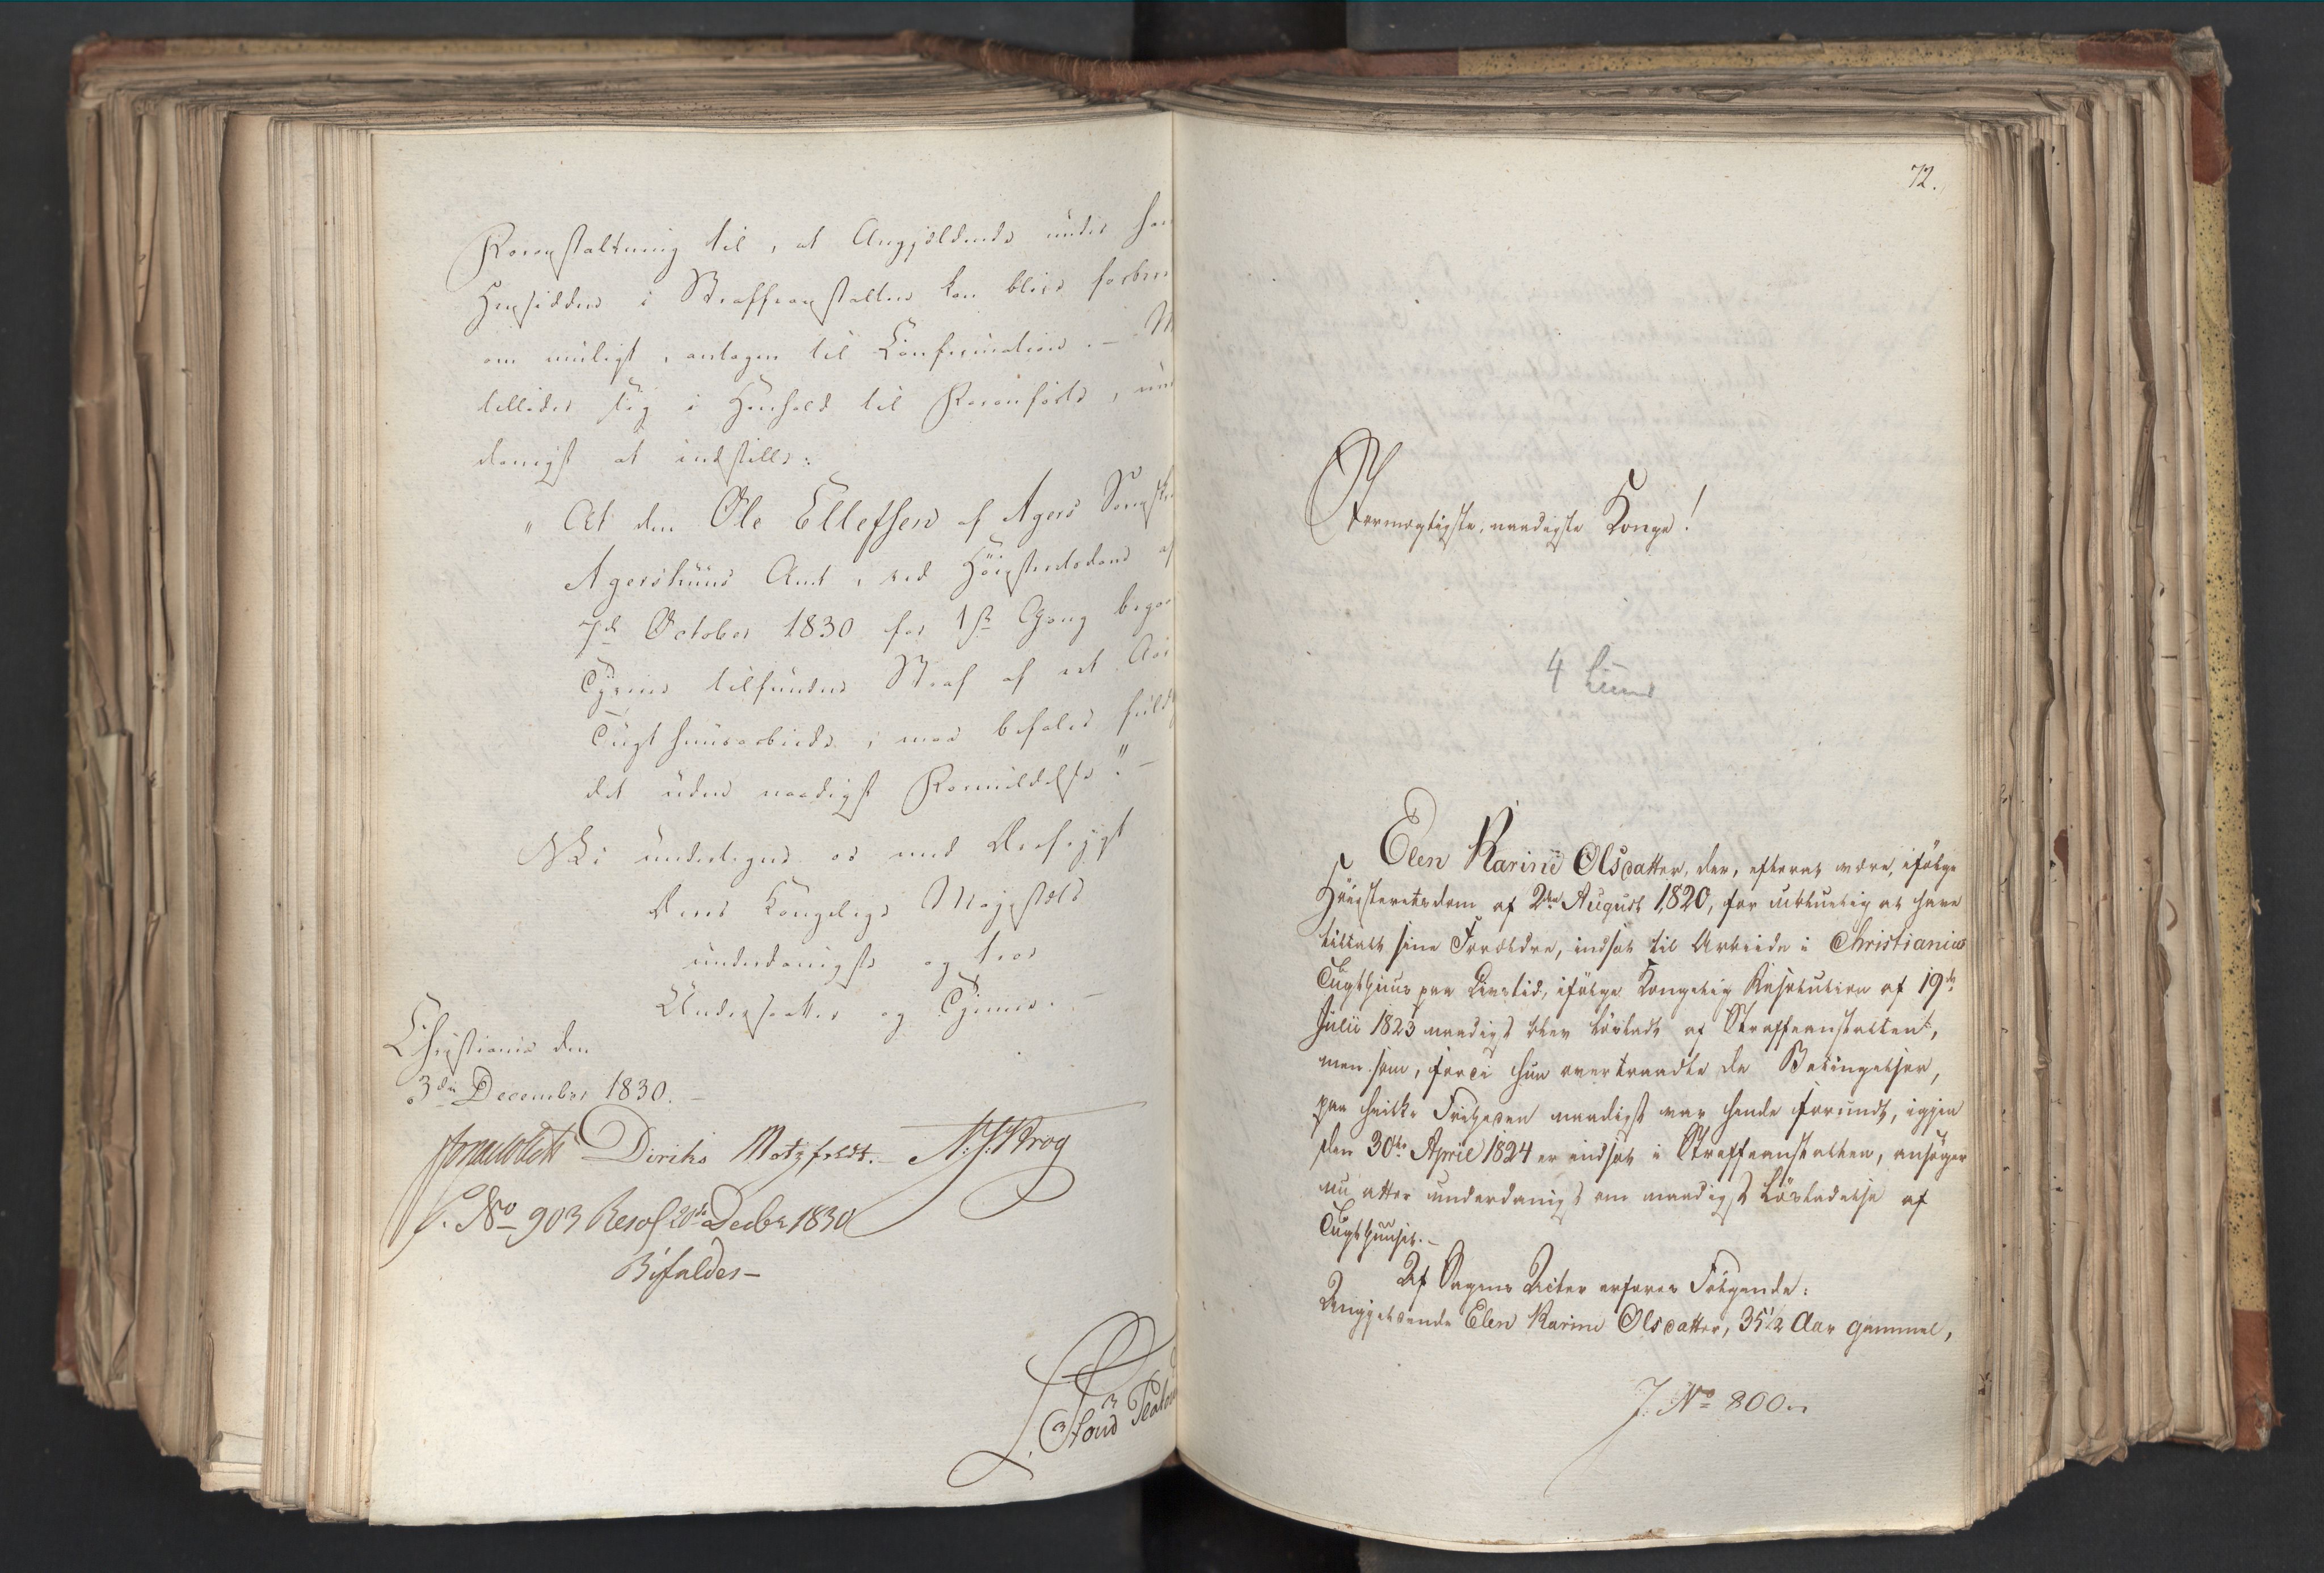 Foranstaltning til, at Angjeldende under han
Hensidden i Straffeanstalten kan blive forbere
om muligt, antagen til Confirmation. — 
tillader sig i Henhold til Foranførte, un
danigst at indstille:
„At den Ole Ellefsen af Agers Sogn
Agershuus Amt, ved Høiesteretsdom af
7de October 1830 for 1ste Gang begaa
Tyverie tilfundne Straf af et Aar
Tugthuusarbeide, maa befales fuldb
det uden naadigst Formildelse". —
Vi undertegne os med Ærefrygt
Deres Kongelige Majestæts
underdanigste og troe
Undersaatter og Tjenere. —
Christiania den
3die December 1830. —
Diriks Motzfeldt. N. J. Krog
J. No 903 Resol 20de Decbr 1830
Bifaldes —
72.
Stormægtigste, naadigste Konge!
4
Elen Karine Olsdatter, der, efterat være, ifølge
Høiesteretsdom af 2den August 1820, for utilbørlig at have
tiltalt sine Forældre, indsat til Arbeide i Christiania
Tugthuus paa Livstid, ifølge Kongelig Resolution af 19de
Julii 1823 naadigst blev løsladt af Straffeanstalten,
men som, fordi hun overtraadte de Betingelser,
paa hvilke Friheden naadigst var hende forundt, igjen
den 30te April 1824 er indsat i Straffeanstalten, ansøger
nu atter underdanigst om naadigst Løsladelse af
Tugthuuset. —
Af Sagens Acter erfares Følgende:
Angjeldende Elen Karine Olsdatter, 35½ Aar gammel,
J. No 800